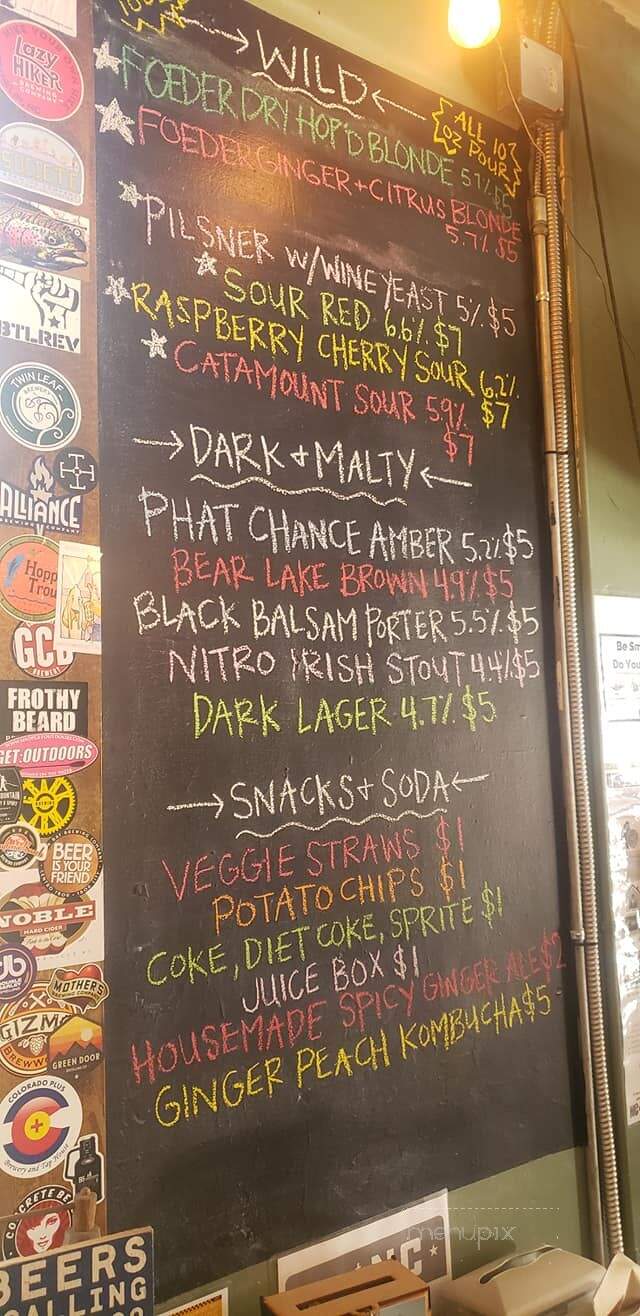 100%
WILD
ALL 10
OZ POURS
FOEDER DRY HOP'D BLONDE 5.1% $5
FOEDER GINGER + CITRUS BLONDE
5.7% $5
PILSNER W/WINE YEAST 5% $5
SOUR RED 6.6% $7
RASPBERRY CHERRY SOUR 6.2%
$7
CATAMOUNT SOUR 5.9%
$7
DARK + MALTY
PHAT CHANCE AMBER 5.2% $5
BEAR LAKE BROWN 4.9% $5
BLACK BALSAM PORTER 5.5% $5
NITRO IRISH STOUT 4.4% $5
DARK LAGER 4.7% $5
SNACKS + SODA
VEGGIE STRAWS $1
POTATO CHIPS $1
COKE, DIET COKE, SPRITE $1
JUICE BOX $1
HOUSEMADE SPICY GINGER ALE $2
GINGER PEACH KOMBUCHA $5
LAZY
HIKER
BREWING
COMPANY
BTLREV
TWIN LEAF
BREWERY
ALLIANCE
Hopp
Trou
GCB
BREWERY
FROTHY
BEARD
GET:OUTDOORS
BEER
IS YOUR
FRIEND
NOBLE
HARD CIDER
MOTHERS
GIZM
BREWW
GREEN DOOR
COLORADO PLUS
Brewery and Tap House
CRETE BE
BEERS
ALLING
NC
Be Sm
Do You
menupix